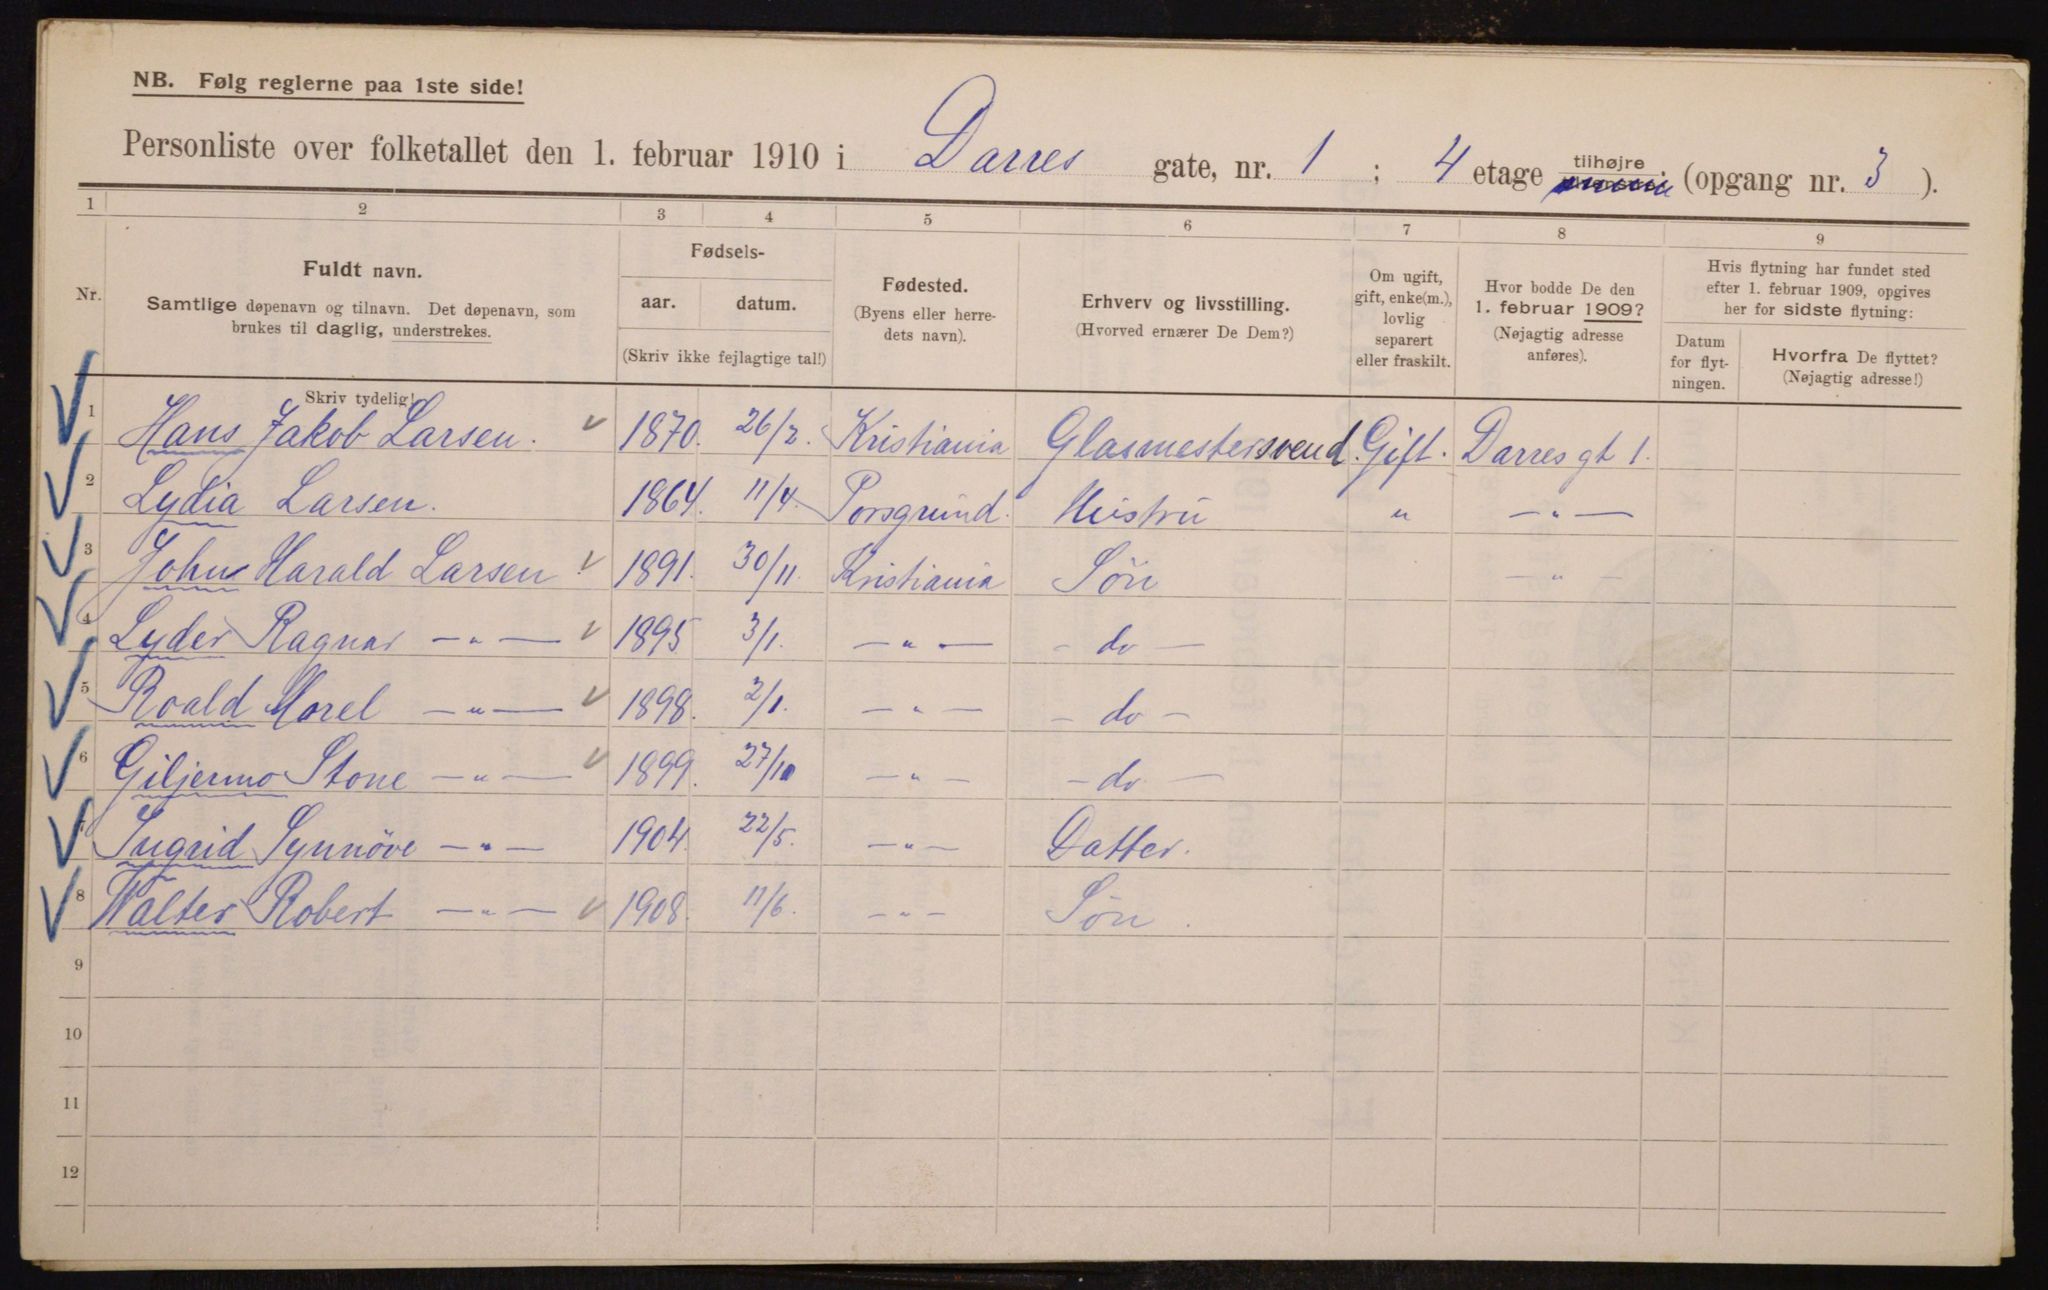 NB. Følg reglerne paa 1ste side!
Personliste over folketallet den 1. februar 1910 i Darres gate, nr. 1 ; 4 etage tilhøjre (opgang nr. 3 ).
1 2 3 4 5 6 7 8 9
Nr.
Fuldt navn.
Samtlige døpenavn og tilnavn. Det døpenavn, som
brukes til daglig, understrekes.
Skriv tydelig!
Fødsels-
aar. datum.
(Skriv ikke fejlagtige tal!)
Fødested.
(Byens eller herre-
dets navn).
Erhverv og livsstilling.
(Hvorved ernærer De Dem?)
Om ugift,
gift, enke(m.),
lovlig
separert
eller fraskilt.
Hvor bodde De den
1. februar 1909?
(Nøjagtig adresse
anføres).
Hvis flytning har fundet sted
efter 1. februar 1909, opgives
her for sidste flytning:
Datum
for flyt-
ningen.
Hvorfra De flyttet?
(Nøjagtig adresse!)
1 Hans Jakob Larsen. 1870. 26/2. Kristiania Glasmestersvend. Gift. Darres gt 1.
2 Lydia Larsen. 1864. 11/4. Porsgrund. Hustru " — " —
3 John Harald Larsen. 1891. 30/11. Kristiania Søn — " —
4 Lyder Ragnar — " — 1895 3/1. — " — - do -
5 Roald Morel — " — 1898. 2/1. — " — - do -
6 Giljermo Stone — " — 1899. 27/10 — " — - do -
7 Ingrid Synnöve — " — 1904. 22/5. — " — Datter.
8 Walter Robert — " — 1908. 11/6. — " — Søn.
9
10
11
12